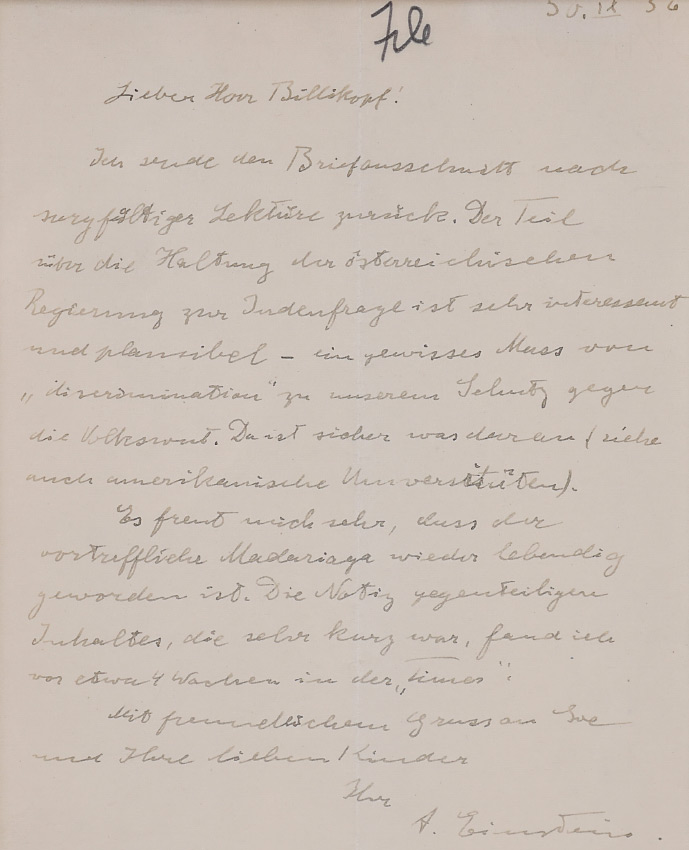 30. IX 36
File
Lieber Herr Billikopf!
Ich sende den Briefausschnitt nach
sorgfältiger Lektüre zurück. Der Teil
über die Haltung der österreichischen
Regierung zur Judenfrage ist sehr interessant
und plausibel – ein gewisses Mass von
„discrimination" zu unserem Schutz gegen
die Volkswut. Da ist sicher was daran (siehe
auch amerikanische Universitäten).
Es freut mich sehr, dass der
vortreffliche Madariaga wieder lebendig
geworden ist. Die Notiz gegenteiligen
Inhaltes, die sehr kurz war, fand ich
vor etwa 4 Wochen in der „Times".
Mit freundlichem Gruss an Sie
und Ihre lieben Kinder
Ihr
A. Einstein.